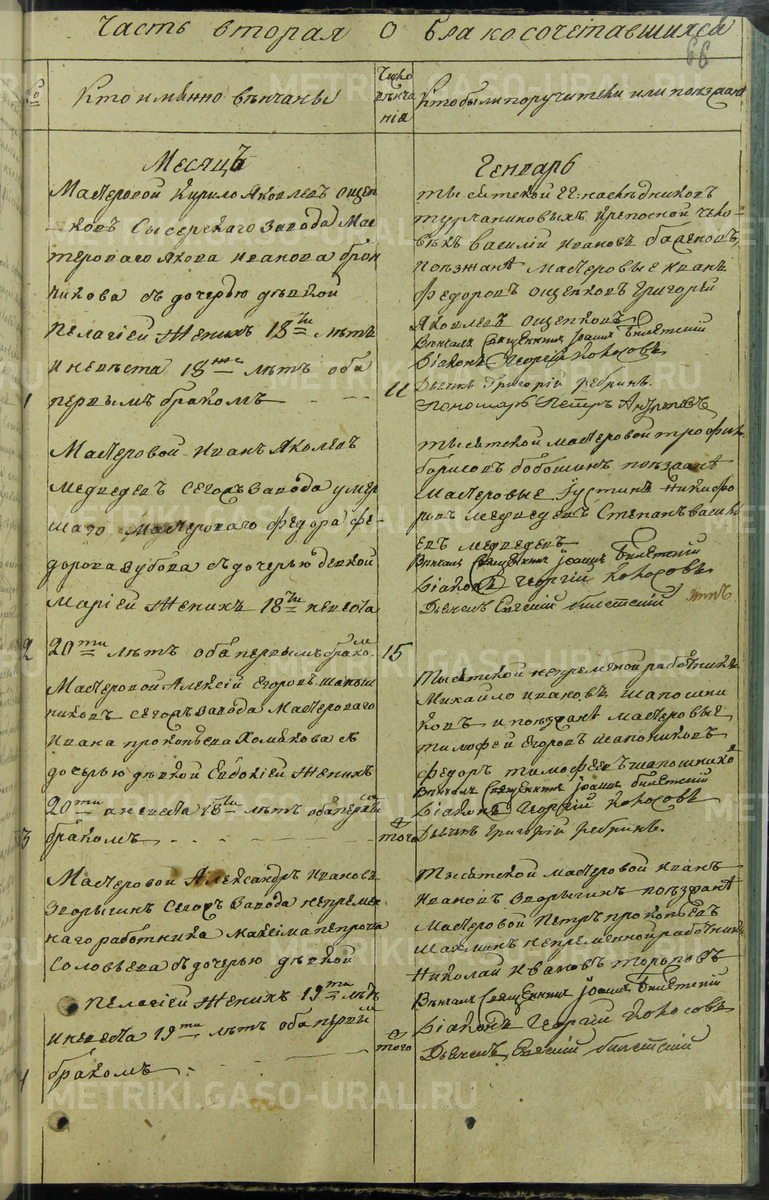 Часть вторая О бракосочетавшихся
68
Кто именно венчаны
Число венчания
Кто были поручители или поезжане
Месяцъ
Генварь
Мастеровой Кирило Яковлевъ Ощеп
ковъ Сысерскаго Завода Мас
тероваго Якова Иванова
никова съ дочерью девкой
Пелагіей Женихъ 18ти летъ
и невеста 18ти летъ оба
1
первымъ бракомъ
11
Тысятской Ее: наследниковъ
Турчаниновыхъ крепосной чело
векъ Василій Ивановъ
поезжане Мастеровые Иванъ
Федоровъ Ощепковъ Григорій
Яковлевъ Ощепковъ
Венчалъ Священникъ Іоаннъ Билетскій
Діаконъ Георгій Кокосовъ
Дьячекъ Григорій Ребринъ.
Пономарь Петръ
Мастеровой Иванъ Яколевъ
Медведевъ Сегожъ Завода умер
шаго Мастероваго Федора Фе
дорова Зубова съ дочерью девкой
Маріей Женихъ 18ти невеста
2
20ти летъ оба первымъ браком
15
Тысятской Мастеровой Трофимъ
Борисовъ поезжане
Мастеровые Іустинъ Никифо
ровъ Медведевъ Степанъ Василь
евъ Медведевъ
Венчалъ Священникъ Іоаннъ Билетскій
Діаконъ Георгій Кокосовъ
Дьячекъ Евгеній Билетскій
Мастеровой Алексій Егоровъ Шапош
никовъ Сегожъ Завода Мастероваго
Ивана Прокопьева Хомякова съ
дочерью девкой Евдокіей Женихъ
20ти а невеста 18ти летъ оба первым
3
бракомъ
того
Тысятской непременой работникъ
Михайло Ивановъ Шапошни
ковъ и поезжане Мастеровые
Тимофей Егоровъ Шапошниковъ
Федоръ Тимофеевъ Шапошнико
Венчалъ Священникъ Іоаннъ Билетскій
Діаконъ Георгій Кокосовъ
Дьячекъ Григорій Ребринъ.
Мастеровой Александръ Ивановъ
Сегожъ Завода непремен
наго работника Максима Петрова
Соловьева съ дочерью девкой
Пелагіей Женихъ 19ти летъ
и невеста 19ти летъ оба первым
4
бракомъ
того
Тысятской Мастеровой Иванъ
Ивановъ поезжане
Мастеровой Петръ Прокопьевъ
непременной работникъ
Николай Ивановъ Тороповъ
Венчалъ Священникъ Іоаннъ Билетскій
Діаконъ Георгій Кокосовъ
Дьячекъ Евгеній Билетскій
METRIKI.GASO-URAL.RU